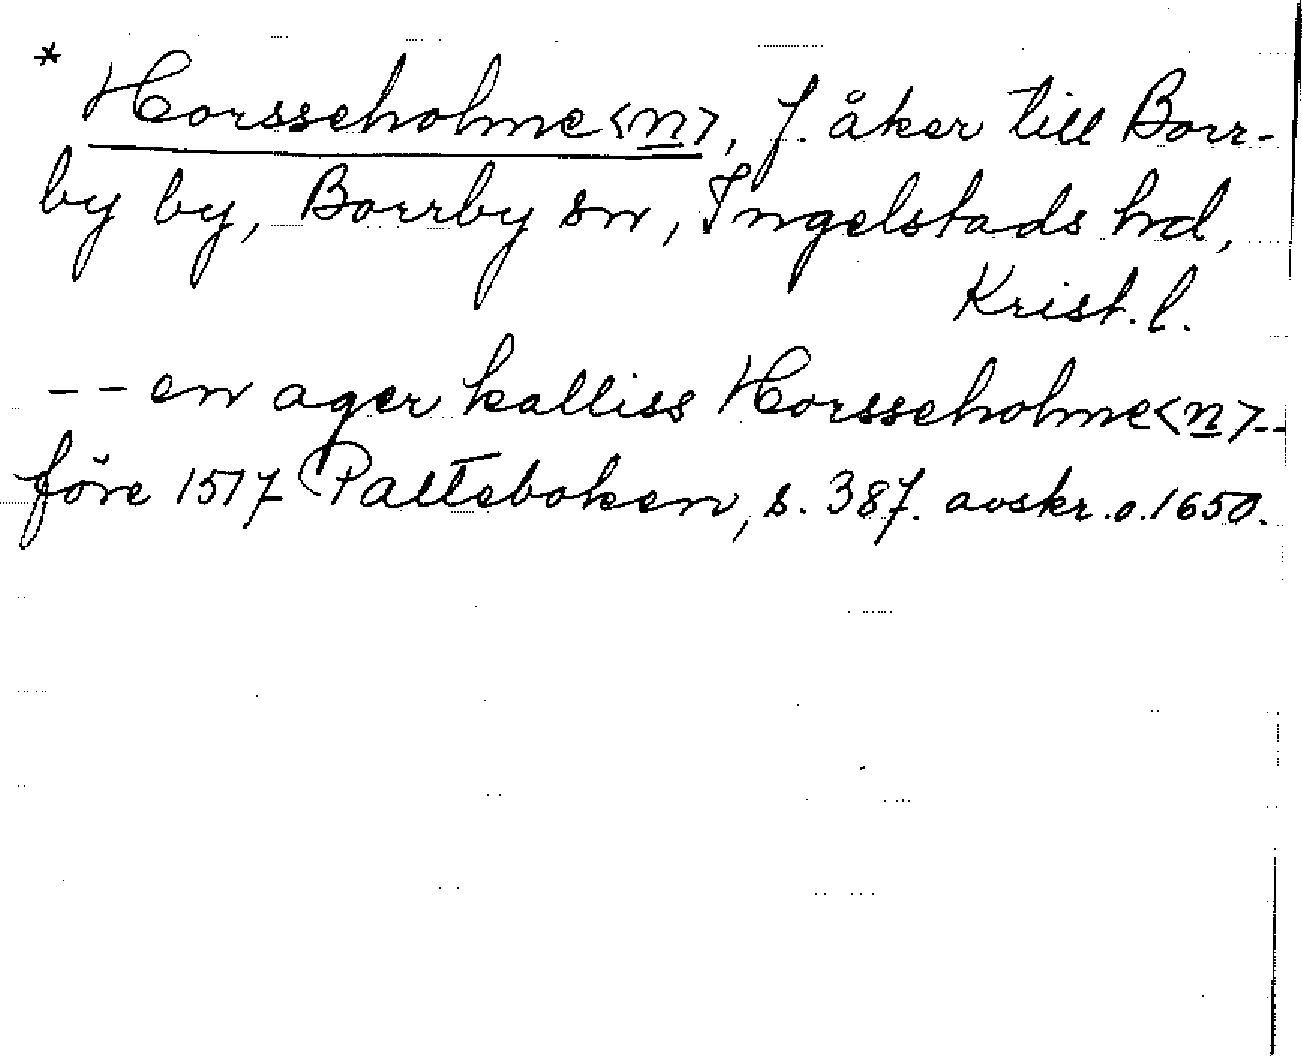 * Horsseholme<n>, f. åker till Borr-
by by, Borrby sn, Ingelstads hd,
Krist. l.
-- en ager kalliss Horsseholme<n>--
före 1517 Palteboken, s. 387. avskr. o. 1650.